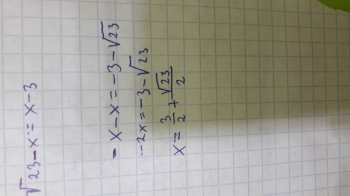 √23 - x = x - 3
- x - x = - 3 - √23
- 2x = - 3 - √23
x = 3/2 + √23/2